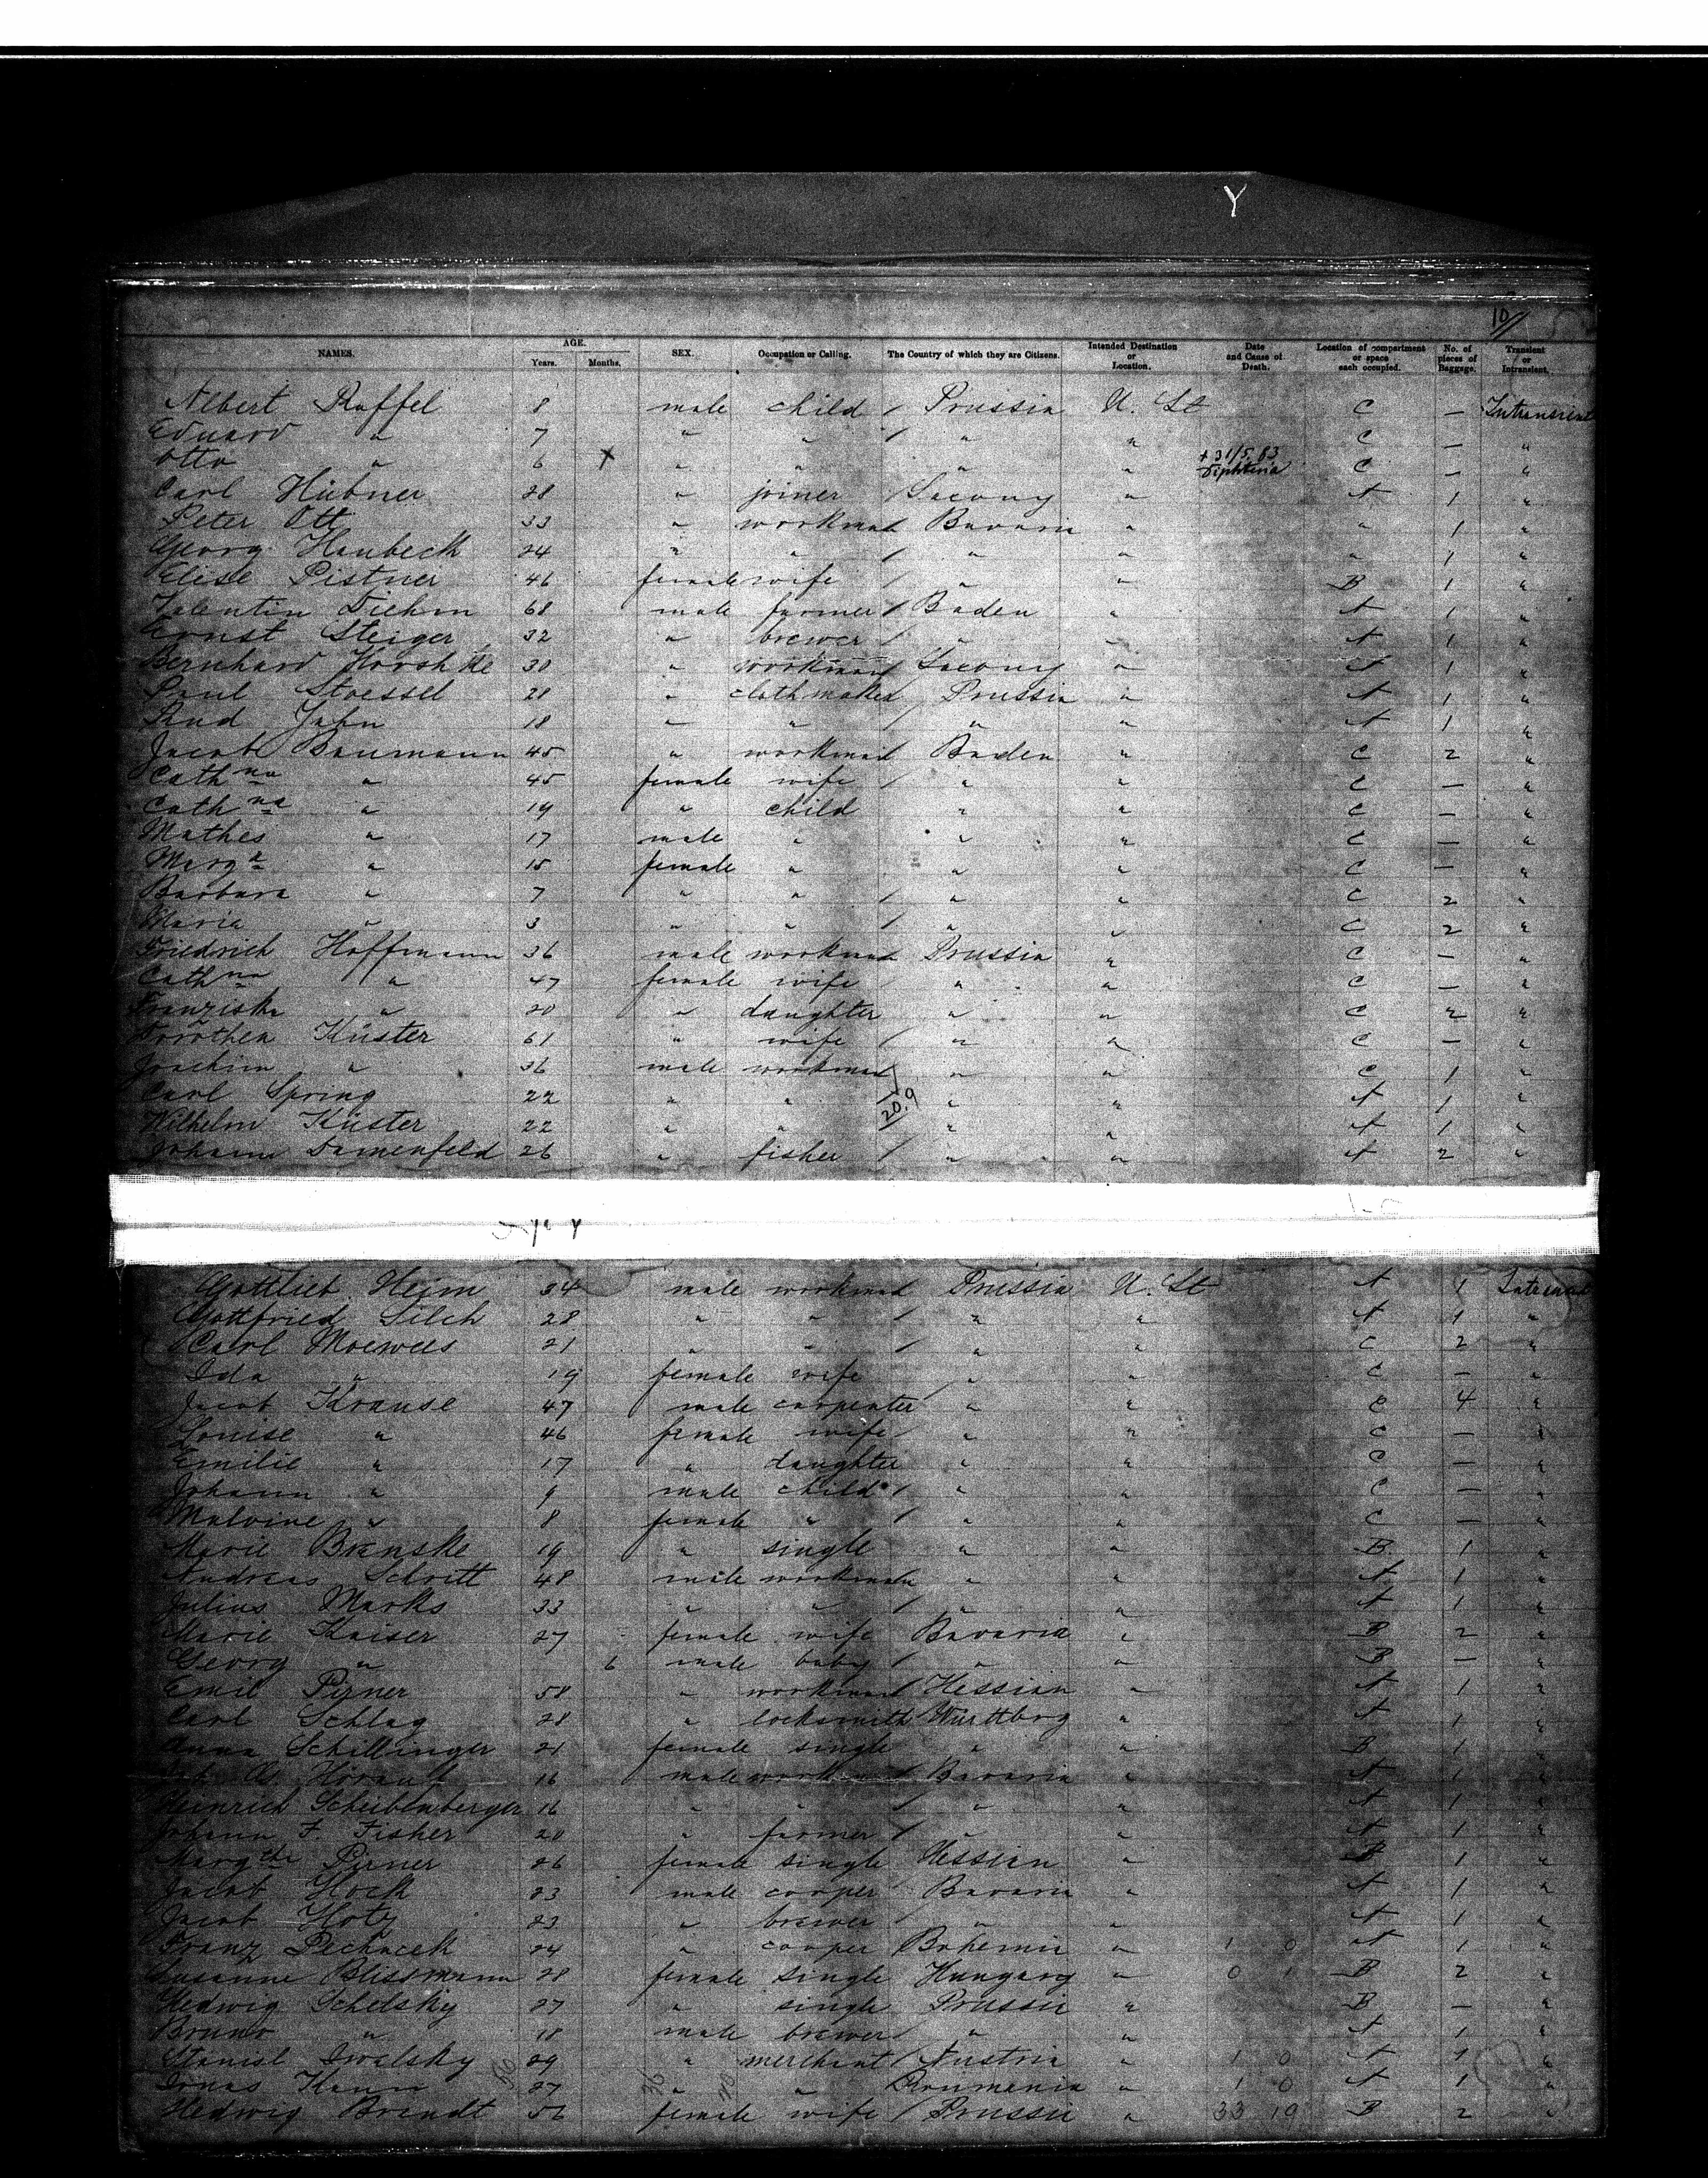 Y
10/
NAMES. AGE. Years. Months. SEX. Occupation or Calling. The Country of which they are Citizens. Intended Destination or Location. Date and Cause of Death. Location of compartment or space each occupied. No. of pieces of Baggage. Transient or Intransient.
Albert Ruffel 8 male child / Prussia U. St C — Intransient
Eduard " 7 " " / " " C — "
Otto " 6 X " " " " + 31/5 83 Diphteria C — "
Carl Hübner 28 " joiner / Saxony " A 1 "
Peter Ott 33 " workman Bavaria " " 1 "
Georg Haubeck 24 " " / " " " 1 "
Elise Pistner 46 female wife / " " B 1 "
Valentin Diehm 68 male farmer / Baden " A 1 "
Ernst Steiger 32 " brewer / " " A 1 "
Bernhard 30 " workman / Saxony " A 1 "
Paul Stoessel 28 " clothmaker Prussia " A 1 "
Rud Jahn 18 " " / " " A 1 "
Jacob Baumann 45 " workman Baden " C 2 "
Cathna " 45 female wife / " " C — "
Cathna " 19 " child " " C — "
Mathes " 17 male " " " C — "
Marga " 15 female " " " C — "
Barbara " 7 " " / " " C 2 "
Maria " 3 " " / " " C 2 "
Friedrich Hoffmann 36 male workman Prussia " C — "
Cathna " 47 female wife " " C — "
Franziska " 20 " daughter " " C 2 "
Dorothea Küster 61 " wife / " " C — "
Joachim " 36 male workman " " C 1 "
Carl Spring 22 " " 20.9 " " A 1 "
Wilhelm Küster 22 " " " " A 1 "
Johann Damenfeld 26 " fisher / " " A 2 "
Gottlieb Heim 34 male workman Prussia U. St A 1
Gottfried Silch 28 " " / " " A 1 "
Carl Moewees 21 " " / " " C 2 "
Ida " 19 female wife / " " C — "
Jacob Krause 47 male carpenter " " C 4 "
Louise " 46 female wife / " " C — "
Emilie " 17 " daughter " " C — "
Johann " 9 male child / " " C — "
Malvine " 8 female " / " " C — "
Marie Branske 19 " single " " B 1 "
Andreas Schrett 48 male workman " " A 1 "
Julius Marks 33 " " / " " A 1 "
Marie Kaiser 27 female wife Bavaria " B 2 "
Georg " 6 male baby / " " B — "
Emil Pirner 58 " workman / Hessian " A 1 "
Carl Schlag 28 " locksmith Württbrg " A 1 "
Anna Schillinger 21 female single " " B 1 "
16 male workman Bavaria " A 1 "
Heinrich Scheiblenberger 16 " " / " " A 1 "
Johann F. Fisher 20 " farmer / " " A 1 "
Margthe Pirner 26 female single Hessian " B 1 "
Jacob Hock 23 male cooper Bavaria " A 1 "
Jacob Hotz 23 " brewer / " " A 1 "
Franz Pechacek 24 " cooper Bohemia " 1 0 A 1 "
Susanne Blissmann 28 female single Hungary " 0 1 B 2 "
Hedwig Schelsky 27 " single Prussia " B — "
Bruno " 18 male brewer / " " A 1 "
Stanisl Iwalsky 29 " merchant / Austria " 1 0 A 1 "
Jonas Kaun 27 " " Roumania " 1 0 A 1 "
Hedwig Brandt 56 female wife / Prussia " 33 19 B 2 "